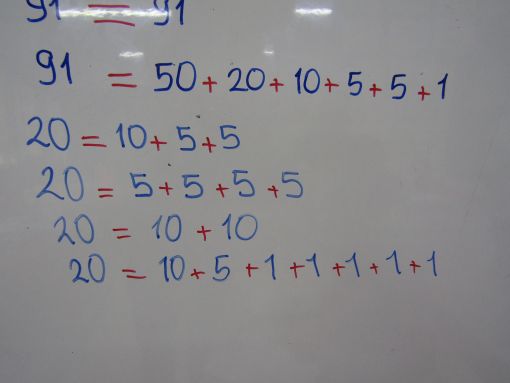 91 = 91
91 = 50 + 20 + 10 + 5 + 5 + 1
20 = 10 + 5 + 5
20 = 5 + 5 + 5 + 5
20 = 10 + 10
20 = 10 + 5 + 1 + 1 + 1 + 1 + 1